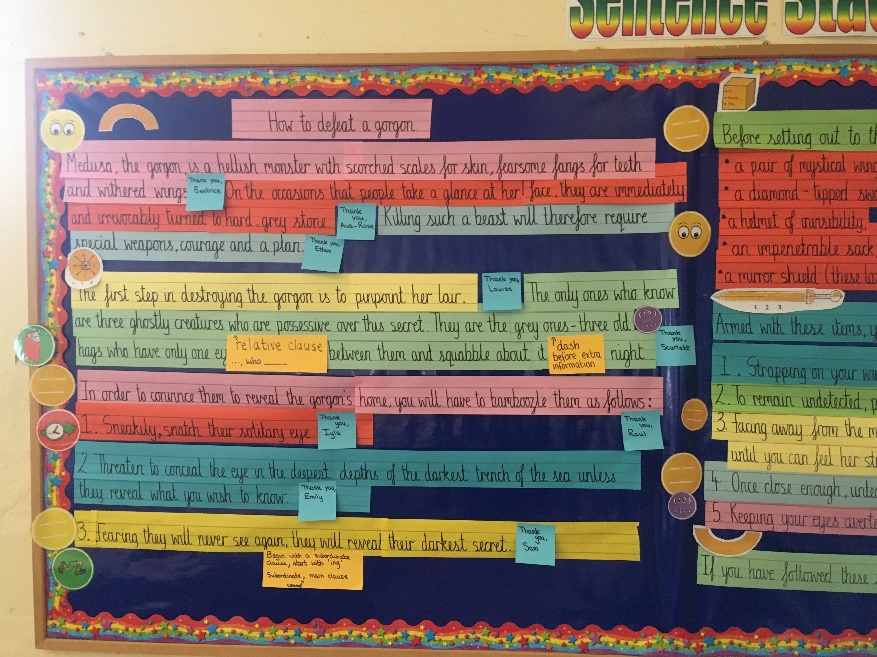 Sentence Sta
How to defeat a gorgon
Medusa, the gorgon is a hellish monster with scorched scales for skin, fearsome fangs for teeth
and withered wings
Thank you, Beatrice
On the occasions that people take a glance at her face, they are immediately
and irrevocably turned to hard, grey stone.
Thank you, Ava-Rose
Killing such a beast will therefore require
special weapons, courage and a plan.
Thank you, Ethan
The first step in destroying the gorgon is to pinpoint her lair.
Thank you, Louise
The only ones who know
are three ghostly creatures who are possessive over this secret. They are the grey ones - three old
hags who have only one ey
relative clause
..., who
between them and squabble about it
dash
before extra
information
night
Thank you, Scarlett
In order to convince them to reveal the gorgon's home, you will have to bamboozle them as follows:
1. Sneakily, snatch their solitary eye
Thank you, Iyla
Thank you, Raul
2 Threaten to conceal the eye in the deepest depths of the darkest trench of the sea unless
they reveal what you wish to know
Thank you, Emily
3. Fearing they will never see again, they will reveal their darkest secret.
Thank you, Sam
Begin with a subordinate
clause, start with "ing"
Subordinate, main clause
Before setting out to th
• a pair of mystical win
• a diamond-tipped
• a helmet of invisibility,
• an impenetrable sack
• a mirror shield (these
1. 2. 3.
Armed with these items, y
1. Strapping on your
2. To remain undetected, p
3. Facing away from the m
until you can feel her
4 Once close enough,
5. Keeping your eyes averte
If you have followed these